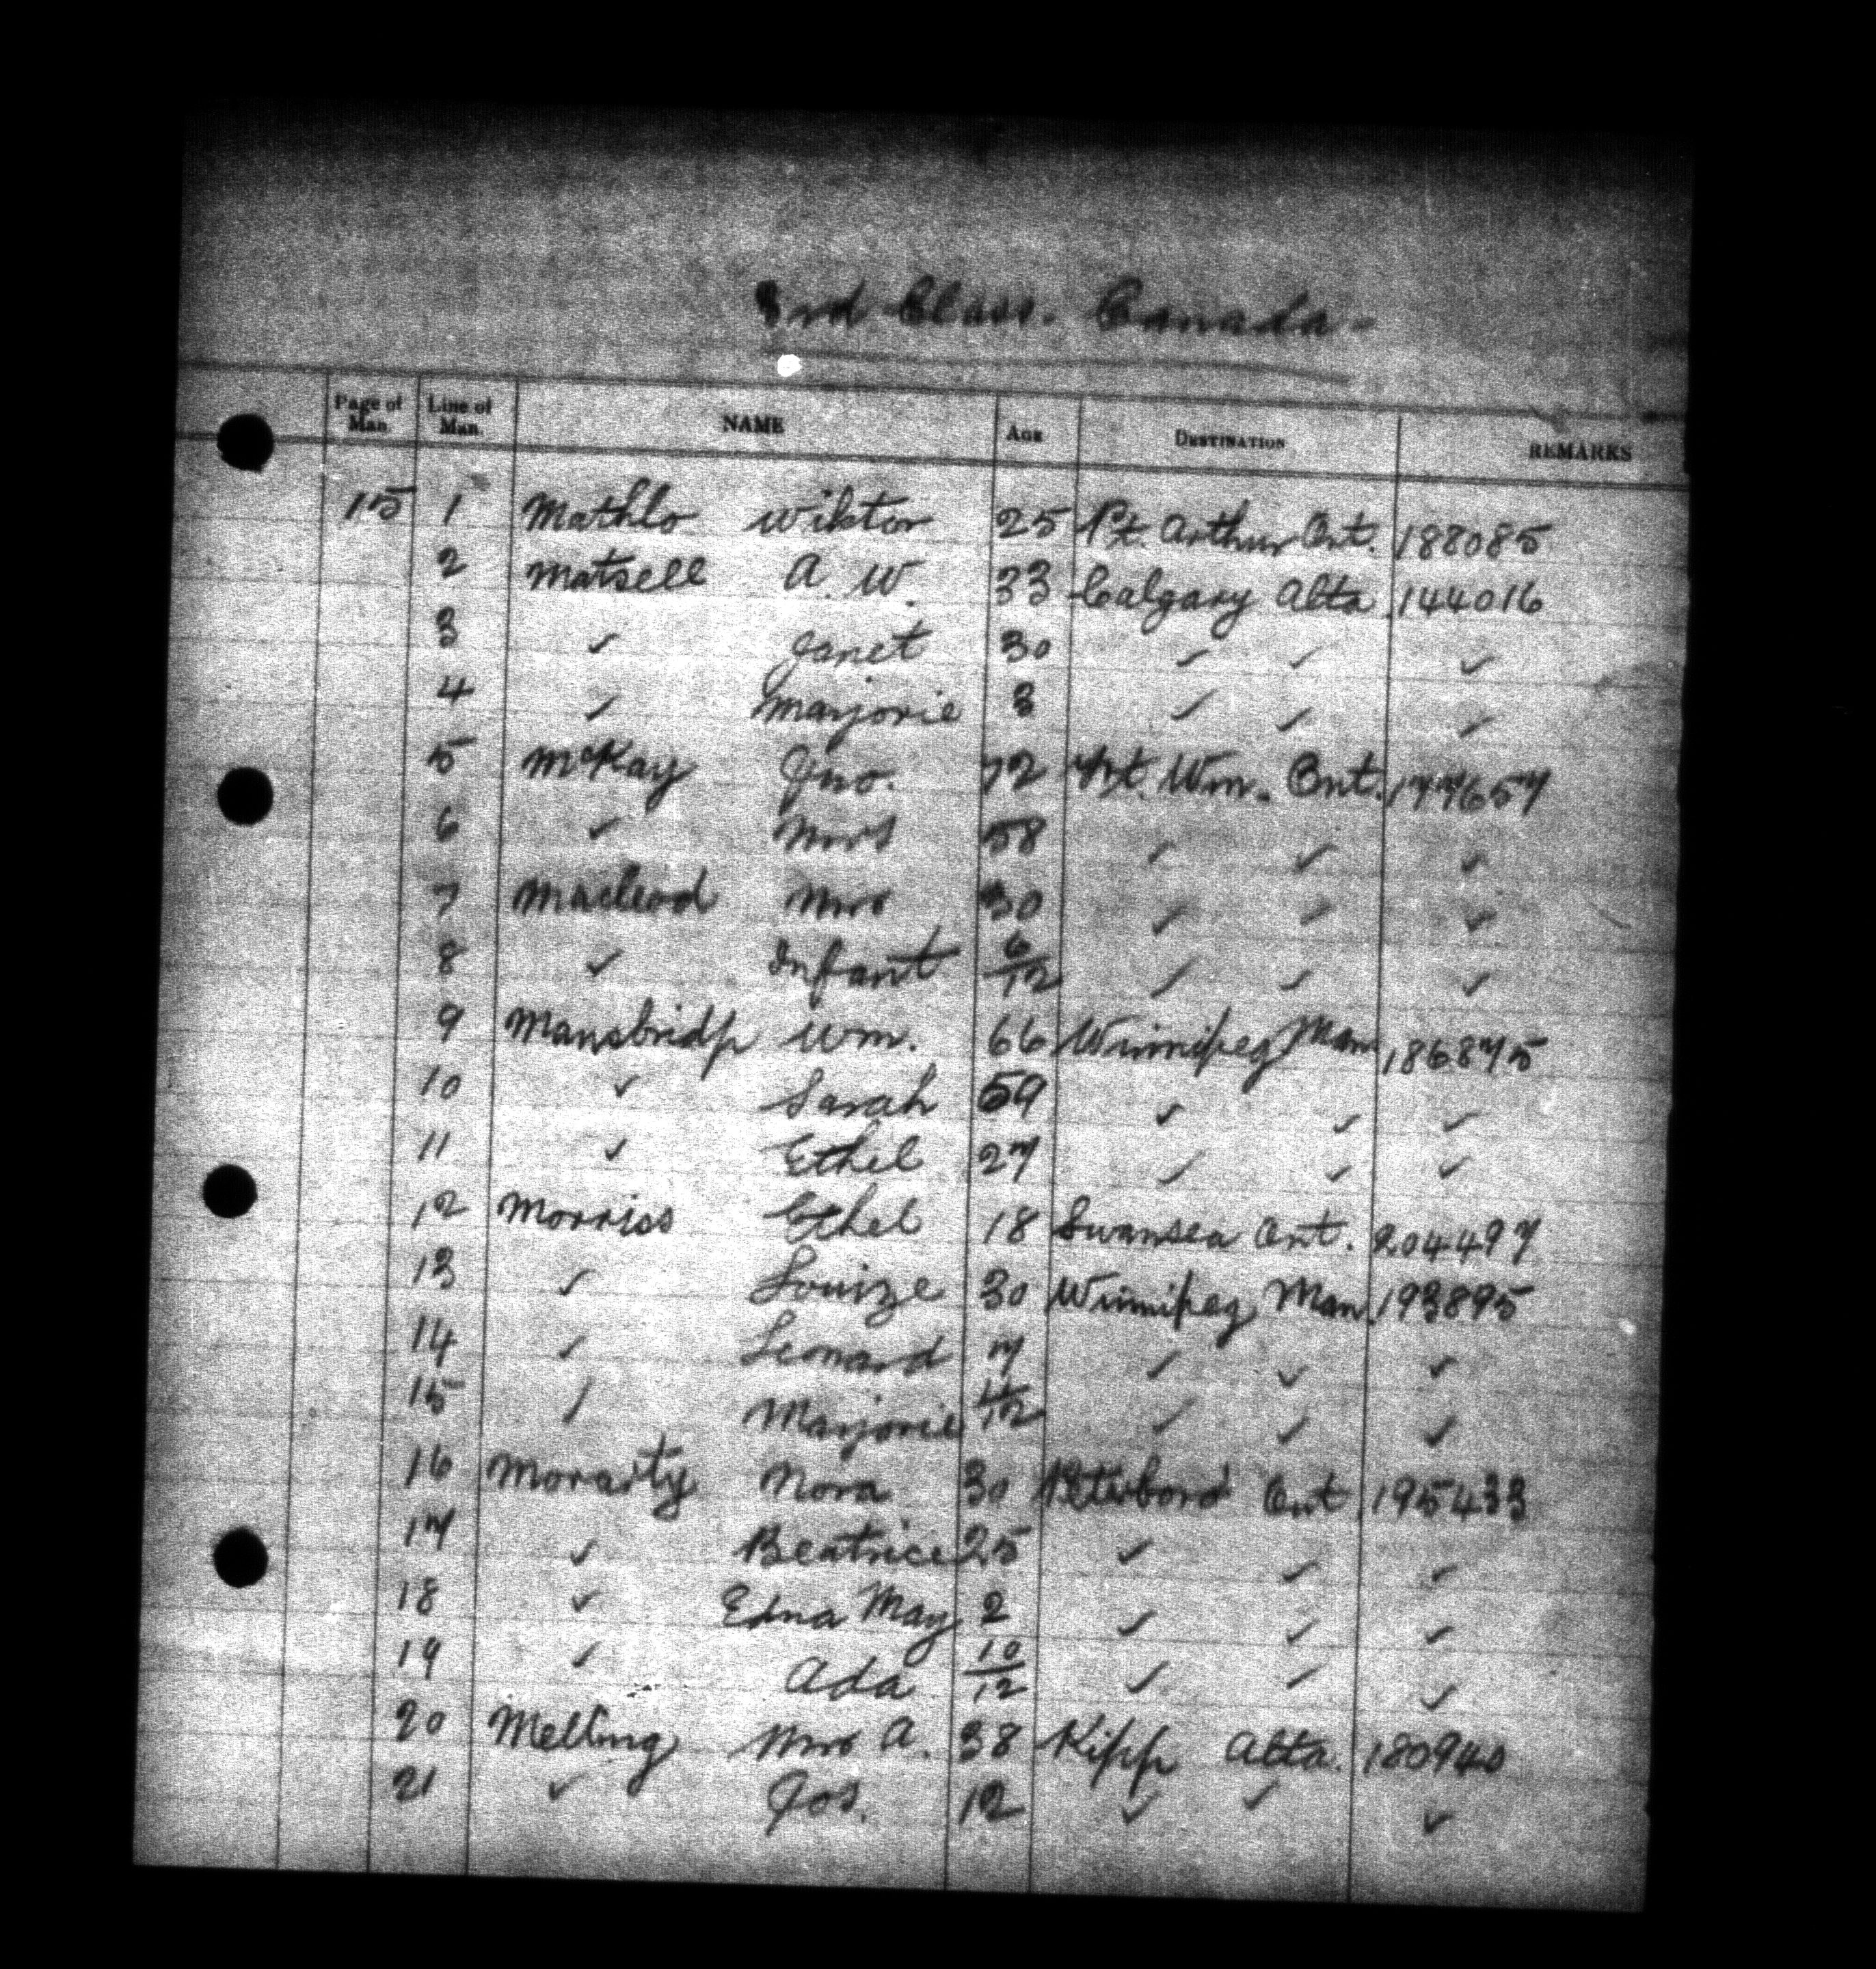 3rd Class. Canada -
Page of Man. Line of Man. NAME AGE DESTINATION REMARKS
15 1 Mathlo Wiktor 25 Pt. Arthur Ont. 188085
2 Matsell A. W. 33 Calgary Alta. 144016
3 ✓ Janet 30 ✓ ✓ ✓
4 ✓ Marjorie 3 ✓ ✓ ✓
5 McKay Jno. 72 Ft. Wm. Ont. 177657
6 ✓ Mrs 58 ✓ ✓ ✓
7 Macleod Mrs 30 ✓ ✓ ✓
8 ✓ Infant 6/12 ✓ ✓ ✓
9 Mansbridp Wm. 66 Winnipeg Man. 186875
10 ✓ Sarah 59 ✓ ✓ ✓
11 ✓ Ethel 27 ✓ ✓ ✓
12 Morriss Ethel 18 Swansea Ont. 204497
13 ✓ Louize 30 Winnipeg Man. 193895
14 ✓ Leonard 7 ✓ ✓ ✓
15 ✓ Marjorie ✓ ✓ ✓
16 Morarty Nora 30 Peterboro' Ont. 195433
17 ✓ Beatrice 25 ✓ ✓ ✓
18 ✓ Edna May 2 ✓ ✓ ✓
19 ✓ Ada 10/12 ✓ ✓ ✓
20 Melling Mrs A. 38 Kipp Alta. 180940
21 ✓ Jos. 12 ✓ ✓ ✓